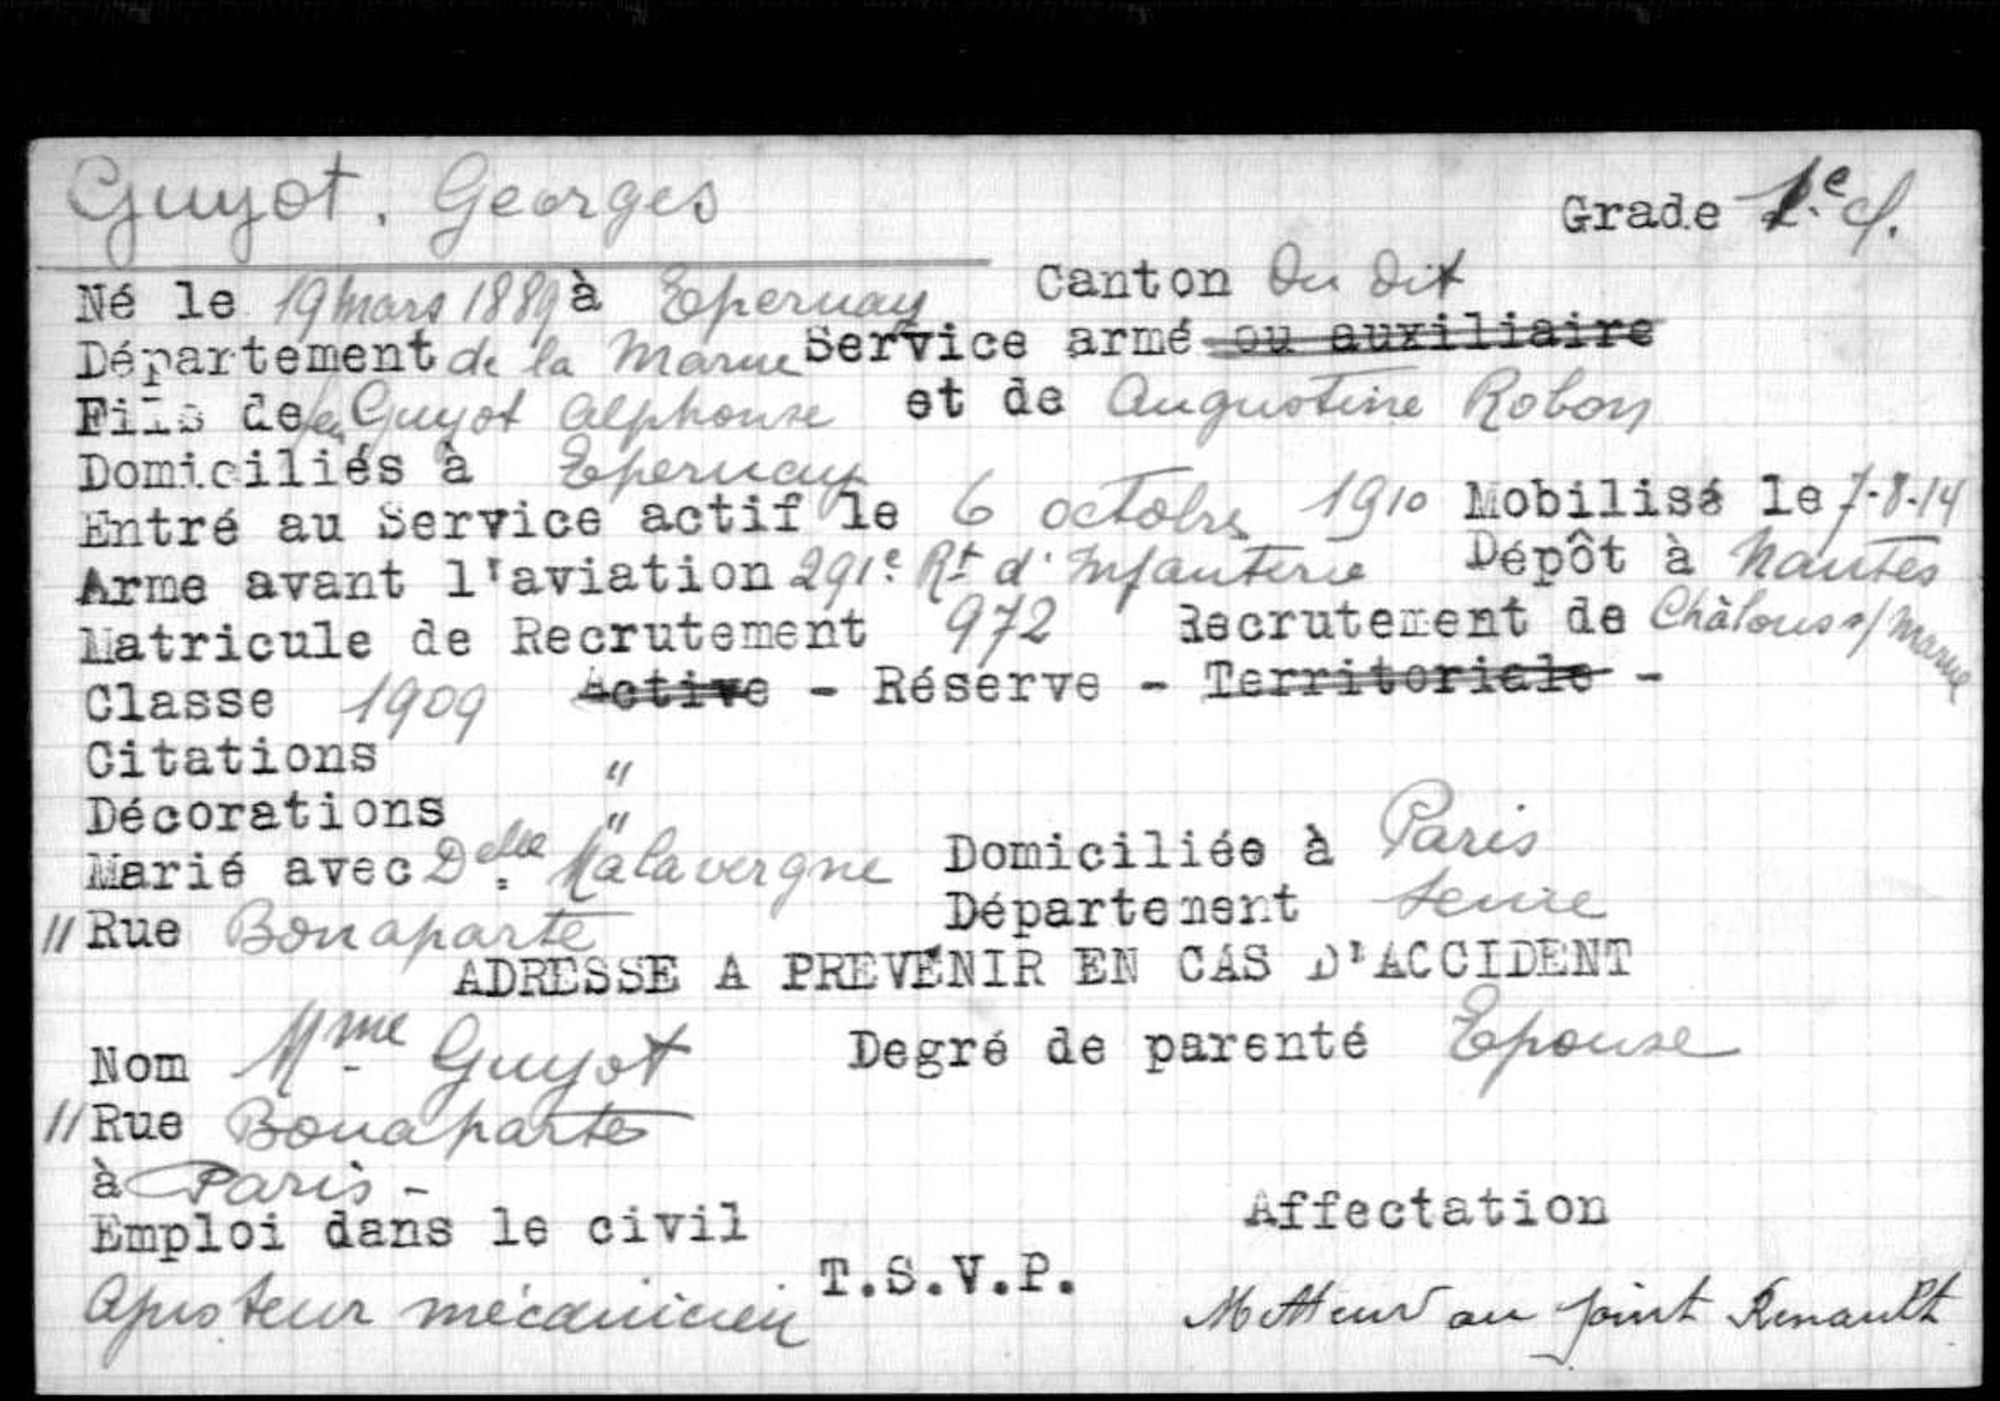 Guyot, Georges Grade 2e cl.
Né le 19 mars 1889 à Epernay Canton du dit
Département de la Marne Service armé ou auxiliaire
Fils de feu Guyot Alphonse et de Augustine Robon
Domiciliés à Epernay
Entré au Service actif le 6 octobre 1910 Mobilisé le 7-8-14
Arme avant l'aviation 291e Rt d'Infanterie Dépôt à Nantes
Matricule de Recrutement 972 Recrutement de Châlons s/ Marne
Classe 1909 Active - Réserve - Territoriale -
Citations "
Décorations "
Marié avec Delle Malavergne Domiciliée à Paris
11 Rue Bonaparte Département Seine
ADRESSE A PREVENIR EN CAS D'ACCIDENT
Nom Mme Guyot Degré de parenté Epouse
11 Rue Bonaparte
à Paris -
Emploi dans le civil Affectation
T.S.V.P.
Ajusteur mécanicien Metteur au point Renault